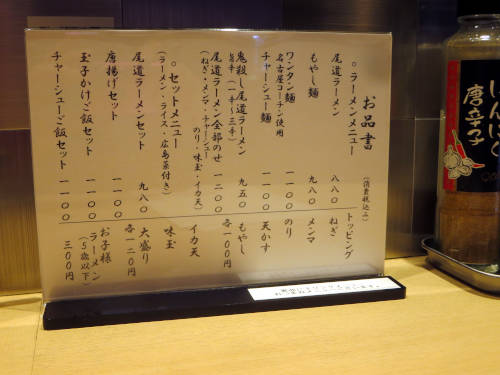 お品書
(消費税込み)
○ラーメンメニュー
尾道ラーメン 八八〇
もやし麺 九八〇
ワンタン麺 一一〇〇
名古屋コーチン使用
チャーシュー麺 一一〇〇
鬼殺し尾道ラーメン 九五〇
旨辛(一辛〜三辛)
尾道ラーメン全部のせ 一二〇〇
(ねぎ・メンマ・チャーシュー
のり・味玉・イカ天)
○セットメニュー
(ラーメン・ライス・広島菜付き)
尾道ラーメンセット 九八〇
唐揚げセット 一一〇〇
玉子かけご飯セット 一一〇〇
チャーシューご飯セット 一一〇〇
トッピング
ねぎ
メンマ
のり
天かす
もやし
各一〇〇円
イカ天
味玉
大盛り
各一二〇円
お子様
ラーメン
(5歳以下)
三〇〇円
にんにく
唐辛子